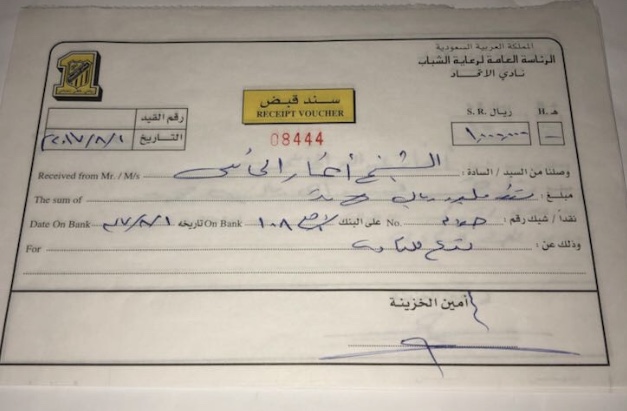 المملكة العربية السعودية
الرئاسة العامة لرعاية الشباب
نادي الاتحاد
سند قبض
RECEIPT VOUCHER
08444
رقم القيد
التاريخ ٢٠١٧/٨/١
ريال .S. R هـ .H
١,٠٠٠,٠٠٠ —
Received from Mr. / M/s وصلنا من السيد / السادة : الشيخ
The sum of مبلغ : مليون ريال
Date On Bank تاريخه On Bank على البنك No. نقداً / شيك رقم : ١٠٨
For وذلك عن :
أمين الخزينة